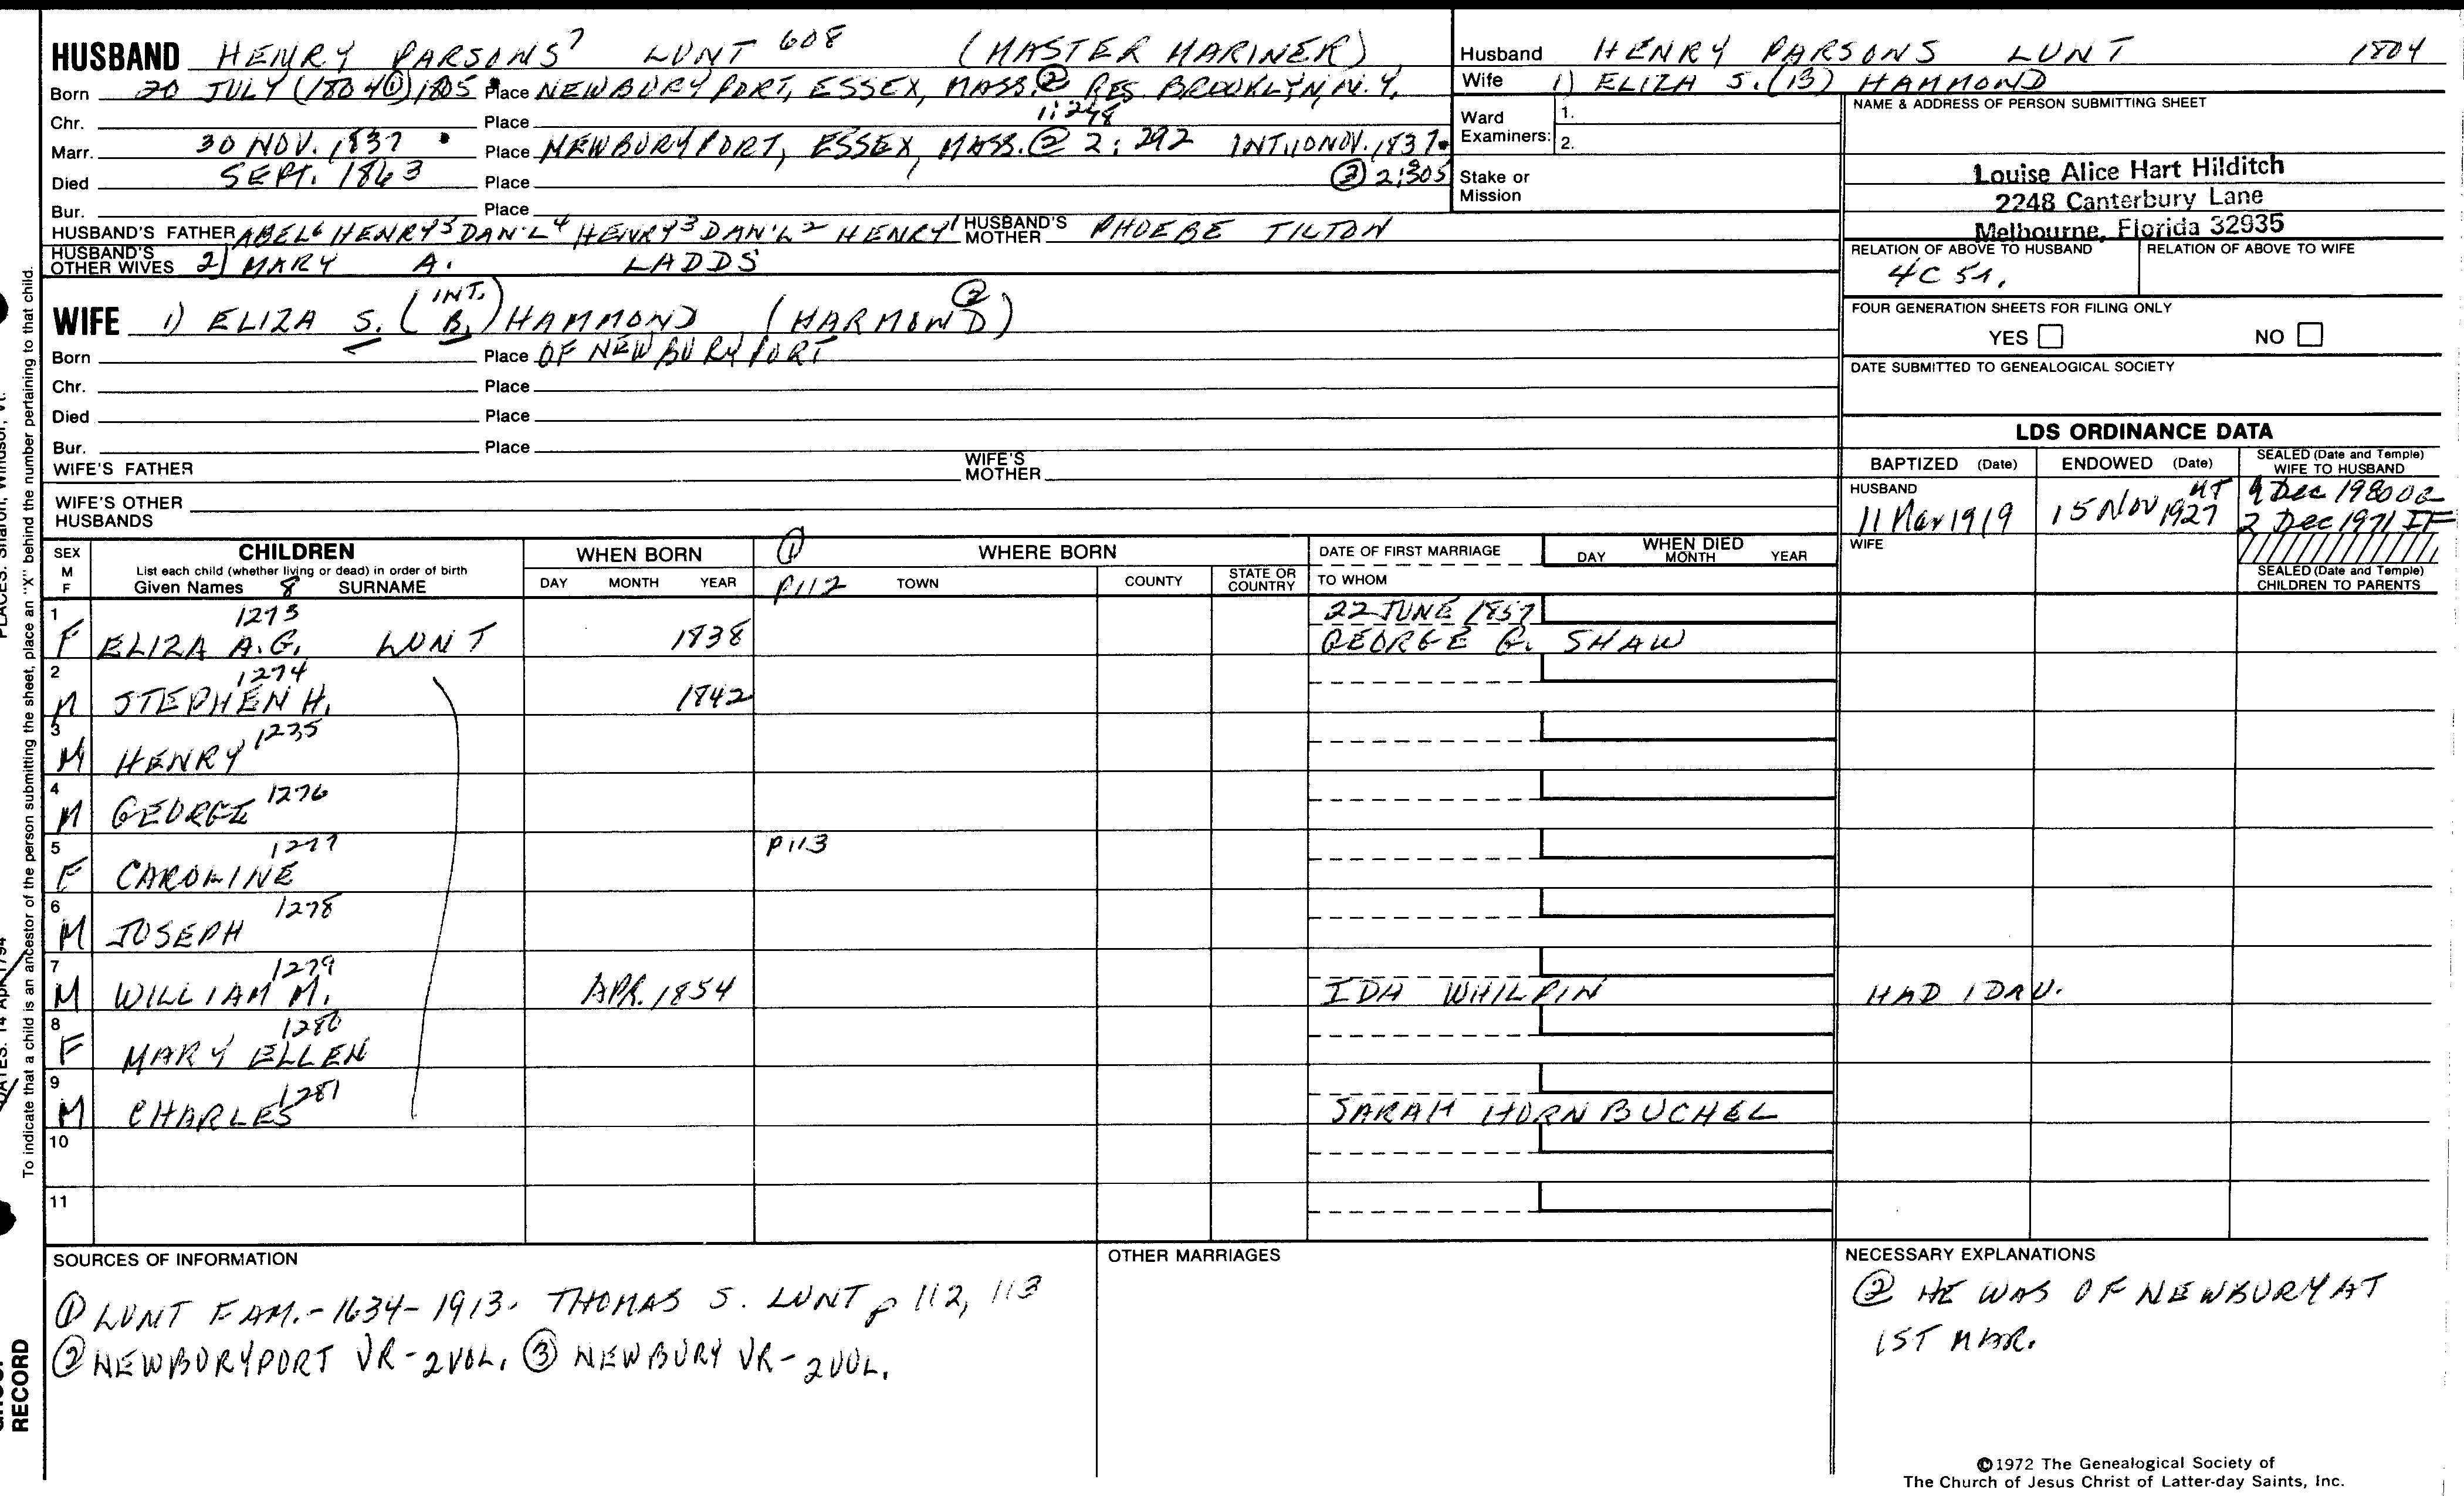 HUSBAND HENRY PARSONS7 LUNT 608 (MASTER MARINER)
Born 20 JULY (1804①) 1805 Place NEWBURYPORT, ESSEX, MASS. ② RES. BROOKLYN, N.Y.
1:248
Chr. Place
Marr. 30 NOV. 1837 Place NEWBURYPORT, ESSEX, MASS. ② 2:292 INT. 10 NOV. 1837.
Died SEPT. 1863 Place ③ 2:305
Bur. Place
HUSBAND'S FATHER ABEL6 HENRY5 DAN'L4 HENRY3 DAN'L2 HENRY1 HUSBAND'S MOTHER PHOEBE TILTON
HUSBAND'S OTHER WIVES 2) MARY A. LADDS
WIFE 1) ELIZA S. (INT. B.) HAMMOND (HARMOND) ②
Born Place OF NEWBURYPORT
Chr. Place
Died Place
Bur. Place
WIFE'S FATHER WIFE'S MOTHER
WIFE'S OTHER HUSBANDS
Husband HENRY PARSONS LUNT 1804
Wife 1) ELIZA S. (B) HAMMOND
Ward 1.
Examiners: 2.
Stake or
Mission
NAME & ADDRESS OF PERSON SUBMITTING SHEET
Louise Alice Hart Hilditch
2248 Canterbury Lane
Melbourne, Florida 32935
RELATION OF ABOVE TO HUSBAND RELATION OF ABOVE TO WIFE
4C 5r.
FOUR GENERATION SHEETS FOR FILING ONLY
YES NO
DATE SUBMITTED TO GENEALOGICAL SOCIETY
LDS ORDINANCE DATA
BAPTIZED (Date) ENDOWED (Date) SEALED (Date and Temple) WIFE TO HUSBAND
HUSBAND 11 Mar 1919 15 Nov 1927 9 Dec 1980
2 Dec 1971 IF
WIFE
SEALED (Date and Temple)
CHILDREN TO PARENTS
SEX M F CHILDREN WHEN BORN ① WHERE BORN DATE OF FIRST MARRIAGE WHEN DIED
List each child (whether living or dead) in order of birth
Given Names 8 SURNAME DAY MONTH YEAR P112 TOWN COUNTY STATE OR COUNTRY TO WHOM DAY MONTH YEAR
1 1273 22 JUNE 1857
F ELIZA A.G. LUNT 1838 GEORGE G. SHAW
2 1274
M STEPHEN H. 1842
3 1235
M HENRY
4 1276
M GEORGE
5 1277 P113
F CAROLINE
6 1278
M JOSEPH
7 1279
M WILLIAM M. APR. 1854 IDA WHILPIN HAD 1 DAU.
8 1280
F MARY ELLEN
9 1281
M CHARLES SARAH HORNBUCHEL
10
11
SOURCES OF INFORMATION
① LUNT FAM. - 1634-1913. THOMAS S. LUNT p 112, 113
② NEWBURYPORT VR - 2 VOL. ③ NEWBURY VR - 2 VOL.
OTHER MARRIAGES
NECESSARY EXPLANATIONS
② HE WAS OF NEWBURY AT
1ST MAR.
©1972 The Genealogical Society of
The Church of Jesus Christ of Latter-day Saints, Inc.
To indicate that a child is an ancestor of the person submitting the sheet, place an "X" behind the number pertaining to that child.
PLACES: Sharon, Windsor, Vt.
DATES: 14 Apr 1794
RECORD